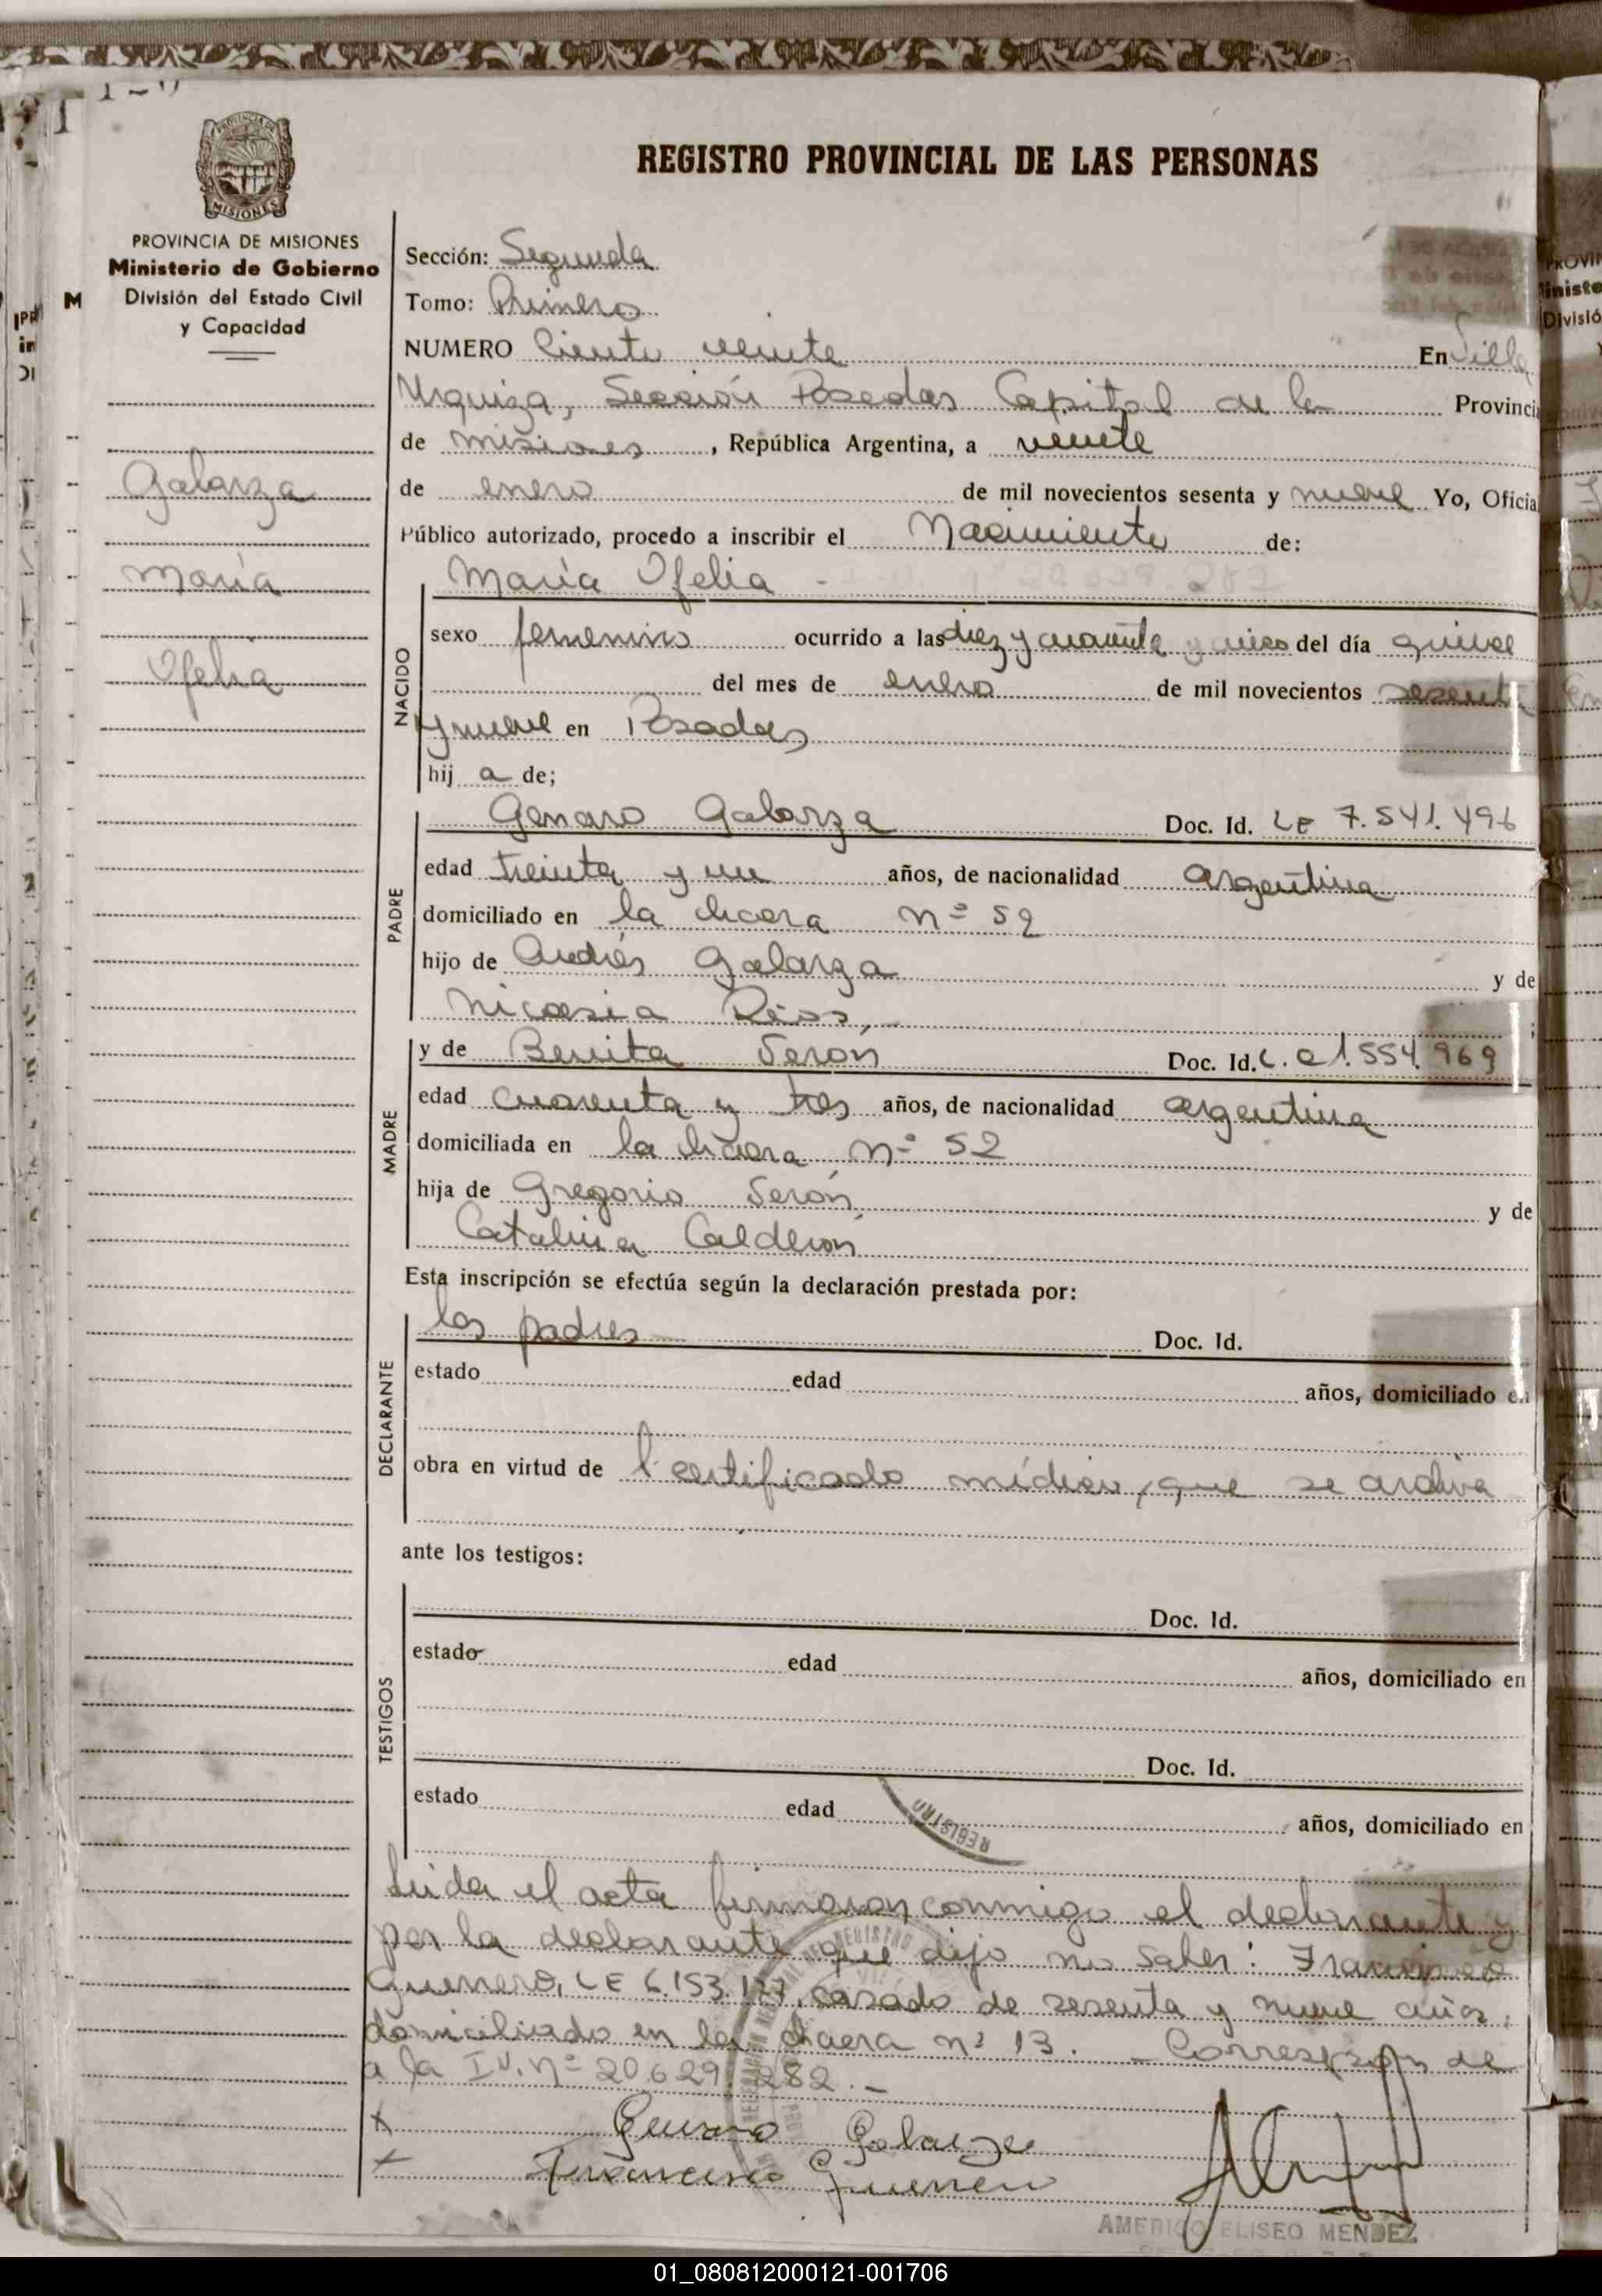 REGISTRO PROVINCIAL DE LAS PERSONAS
MISIONES
PROVINCIA DE MISIONES
Ministerio de Gobierno
División del Estado Civil
y Capacidad
Galarza
María
Ofelia
Sección: Segunda
Tomo: Primero
NUMERO Ciento veinte En Villa
Urquiza, Sección Posadas Capital de la Provinci
de misiones, República Argentina, a veinte
de enero de mil novecientos sesenta y nueve Yo, Oficia
Público autorizado, procedo a inscribir el Nacimiento de:
NACIDO
María Ofelia
sexo femenino ocurrido a las diez y cuarenta y cinco del día quince
del mes de enero de mil novecientos sesenta
y nueve en Posadas
hij a de;
PADRE
Genaro Galarza Doc. Id. LE 7.541.496
edad treinta y un años, de nacionalidad argentina
domiciliado en la chacra nº 52
hijo de Andrés Galarza y de
Nicasia Ríos,
MADRE
y de Benita Serón Doc. Id. L.C 1.554.969
edad cuarenta y tres años, de nacionalidad argentina
domiciliada en la chacra nº 52
hija de Gregorio Serón y de
Catalina Calderón
Esta inscripción se efectúa según la declaración prestada por:
DECLARANTE
los padres Doc. Id.
estado edad años, domiciliado en
obra en virtud de l certificado médico, que se archiva
ante los testigos:
TESTIGOS
Doc. Id.
estado edad años, domiciliado en
Doc. Id.
estado edad años, domiciliado en
REGISTRO
Leída el acta firmaron conmigo el declarante y
por la declarante que dijo no saber: Francisco
Guerrero, LE 6.153.177, casado de sesenta y nueve años,
domiciliado en la chacra nº 13. - Corresponde
a la IN. nº 20.629.282.-
Genaro Galarza
Francisco Guerrero
AMERICO ELISEO MENDEZ
01_080812000121-001706